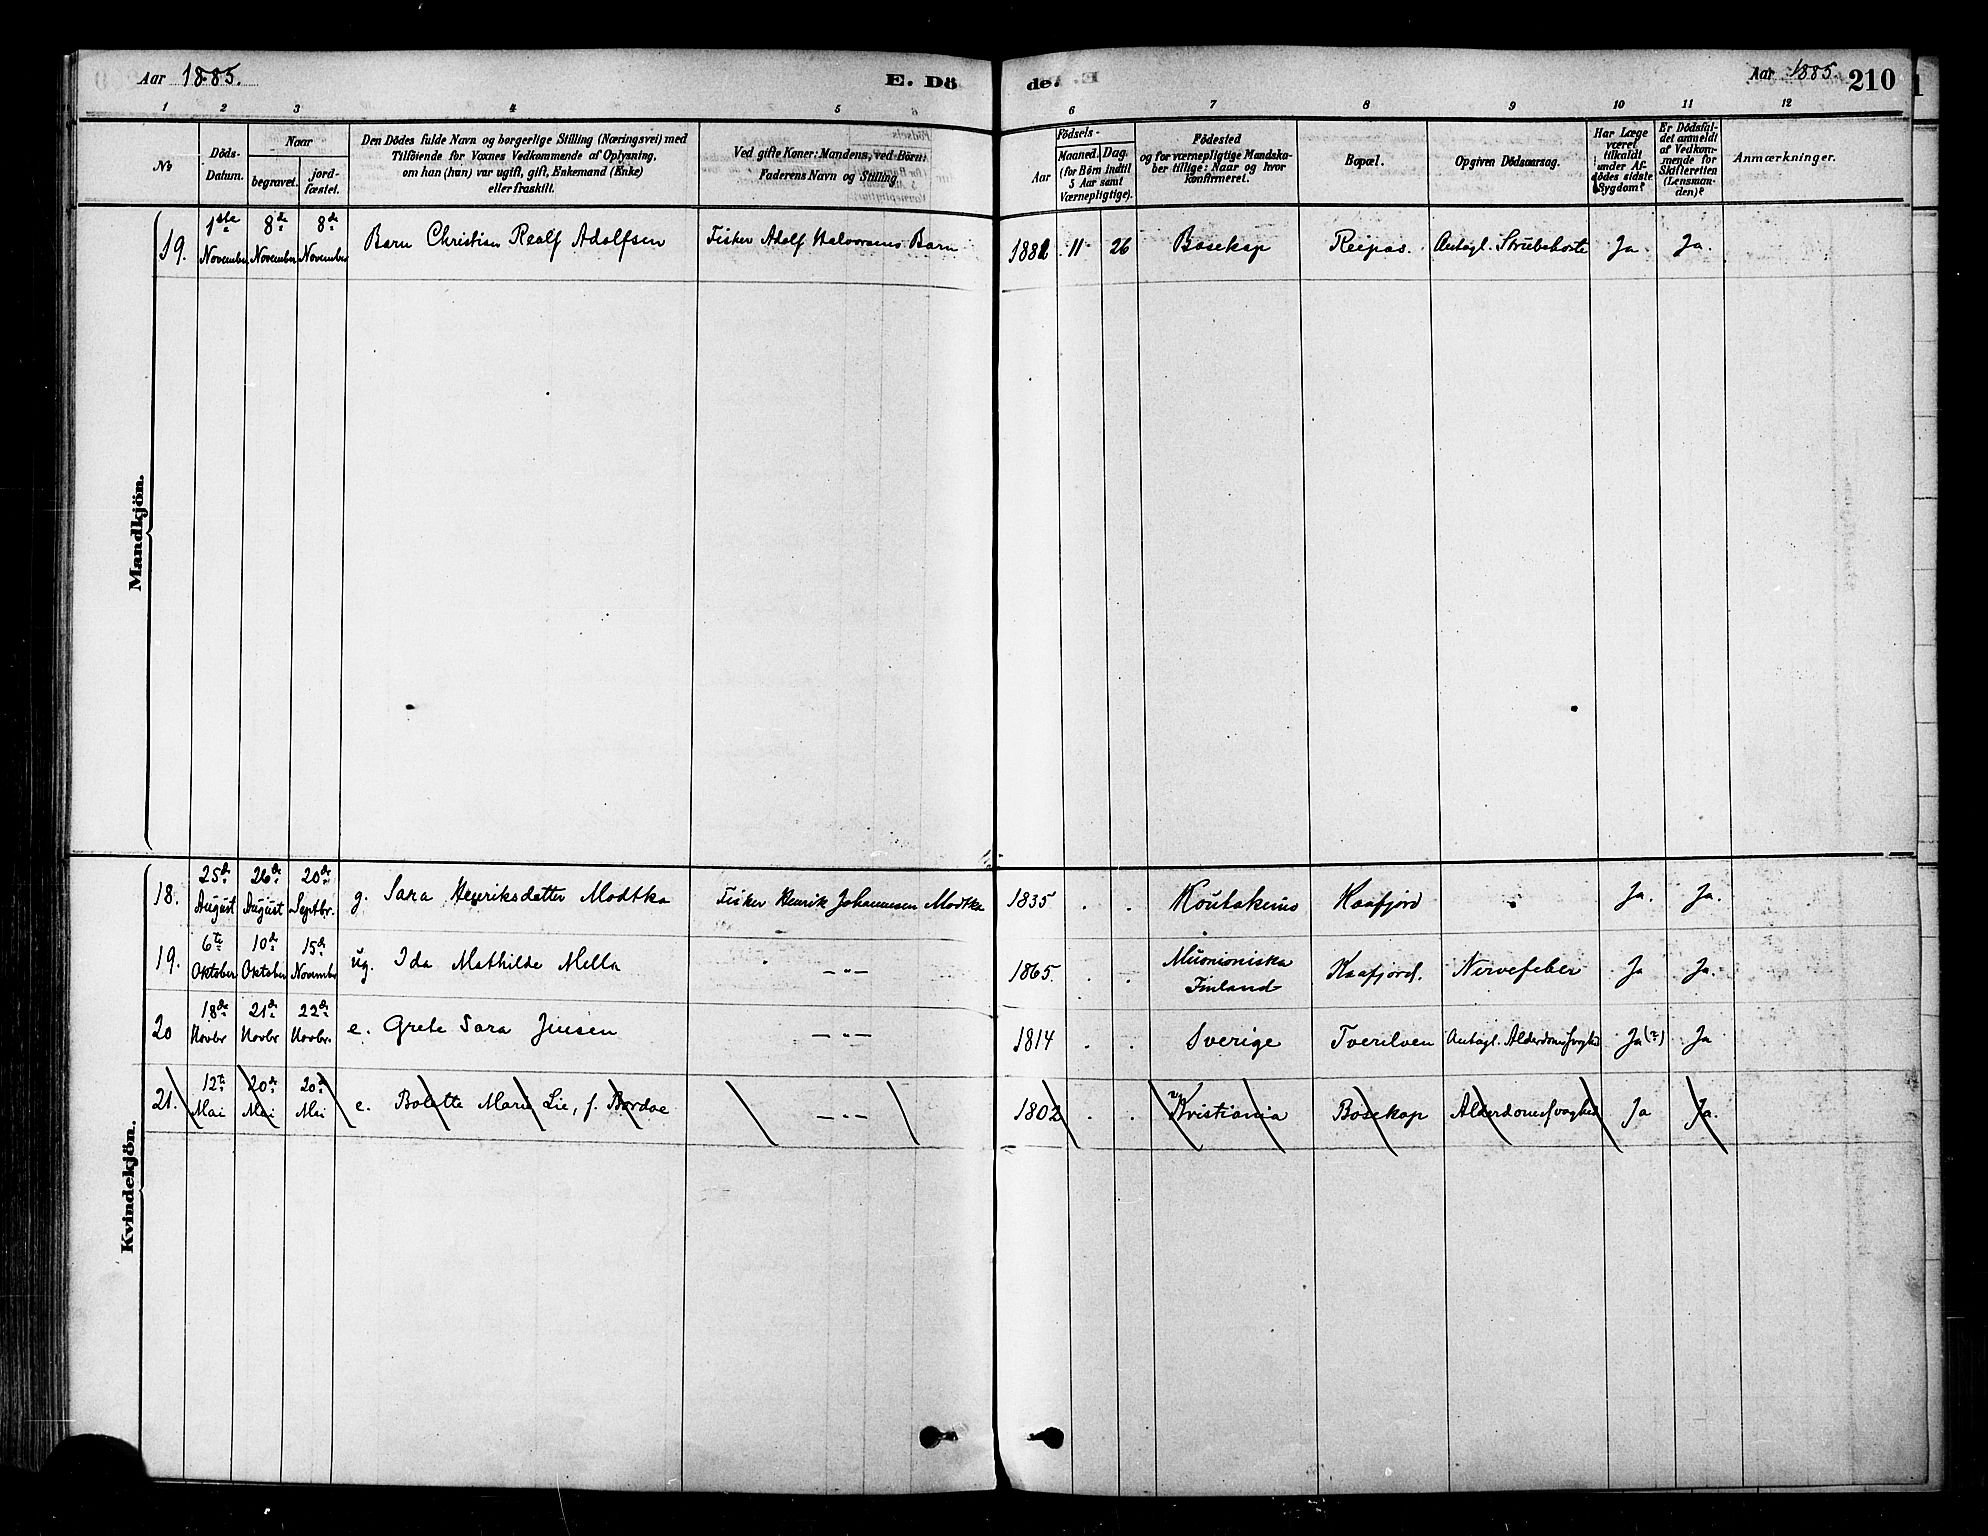 Aar 1885.
E. Döde.
Aar 1885.
210
1 2 3 4 5 6 7 8 9 10 11 12
No
Döds-
Datum.
Naar
begravet.
jord-
fæstet.
Den Dödes fulde Navn og borgerlige Stilling (Næringsvei) med
Tilföiende for Voxnes Vedkommende af Oplysning,
om han (hun) var ugift, gift, Enkemand (Enke)
eller fraskilt.
Ved gifte Koner: Mandens, ved Börn:
Faderens Navn og Stilling.
Födsels-
Aar
Maaned. Dag.
(for Börn indtil
5 Aar samt
Værnepligtige).
Födested
og for værnepligtige Mandska-
ber tillige: Naar og hvor
konfirmeret.
Bopæl.
Opgiven Dödsaarsag.
Har Læge
været
tilkaldt
under Af-
dödes sidste
Sygdom?
Er Dödsfal-
det anmeldt
af Vedkom-
mende for
Skifteretten
(Lensman-
den)?
Anmærkninger.
Mandkjön.
19.
1ste November
8de November
8de November
Barn Christian Realf Adolfsen
Fisker Adolf Halvorsens Barn
1882 11 26
Bosekop
Reipas.
Antagl. Strubehoste
Ja
Ja.
Kvindekjön.
18.
25de August
26de August
20de Septbr.
g. Sara Henriksdatter Modtka
Fisker Henrik Johannesen Modtka
1835 . .
Koutokeino
Kaafjord
.
Ja.
Ja.
19.
6te Oktober
10de Oktober
15de November
ug. Ida Mathilde Mella
— " —
1865. . .
Muonioniska
Finland
Kaafjord.
Nervefeber
Ja
Ja.
20
18de Novbr
21de Novbr
22de Novbr.
e. Grete Sara Jensen
— " —
1814 . .
Sverige
Tverelven
Antagl. Alderdomssvaghed
Ja (?)
Ja
21.
12te Mai
20de Mai
20de Mai
e. Bolette Marie Lie, f. Bordoe
— " —
1802 . .
Kristiania
Bosekop
Alderdomssvaghed
Ja
Ja.